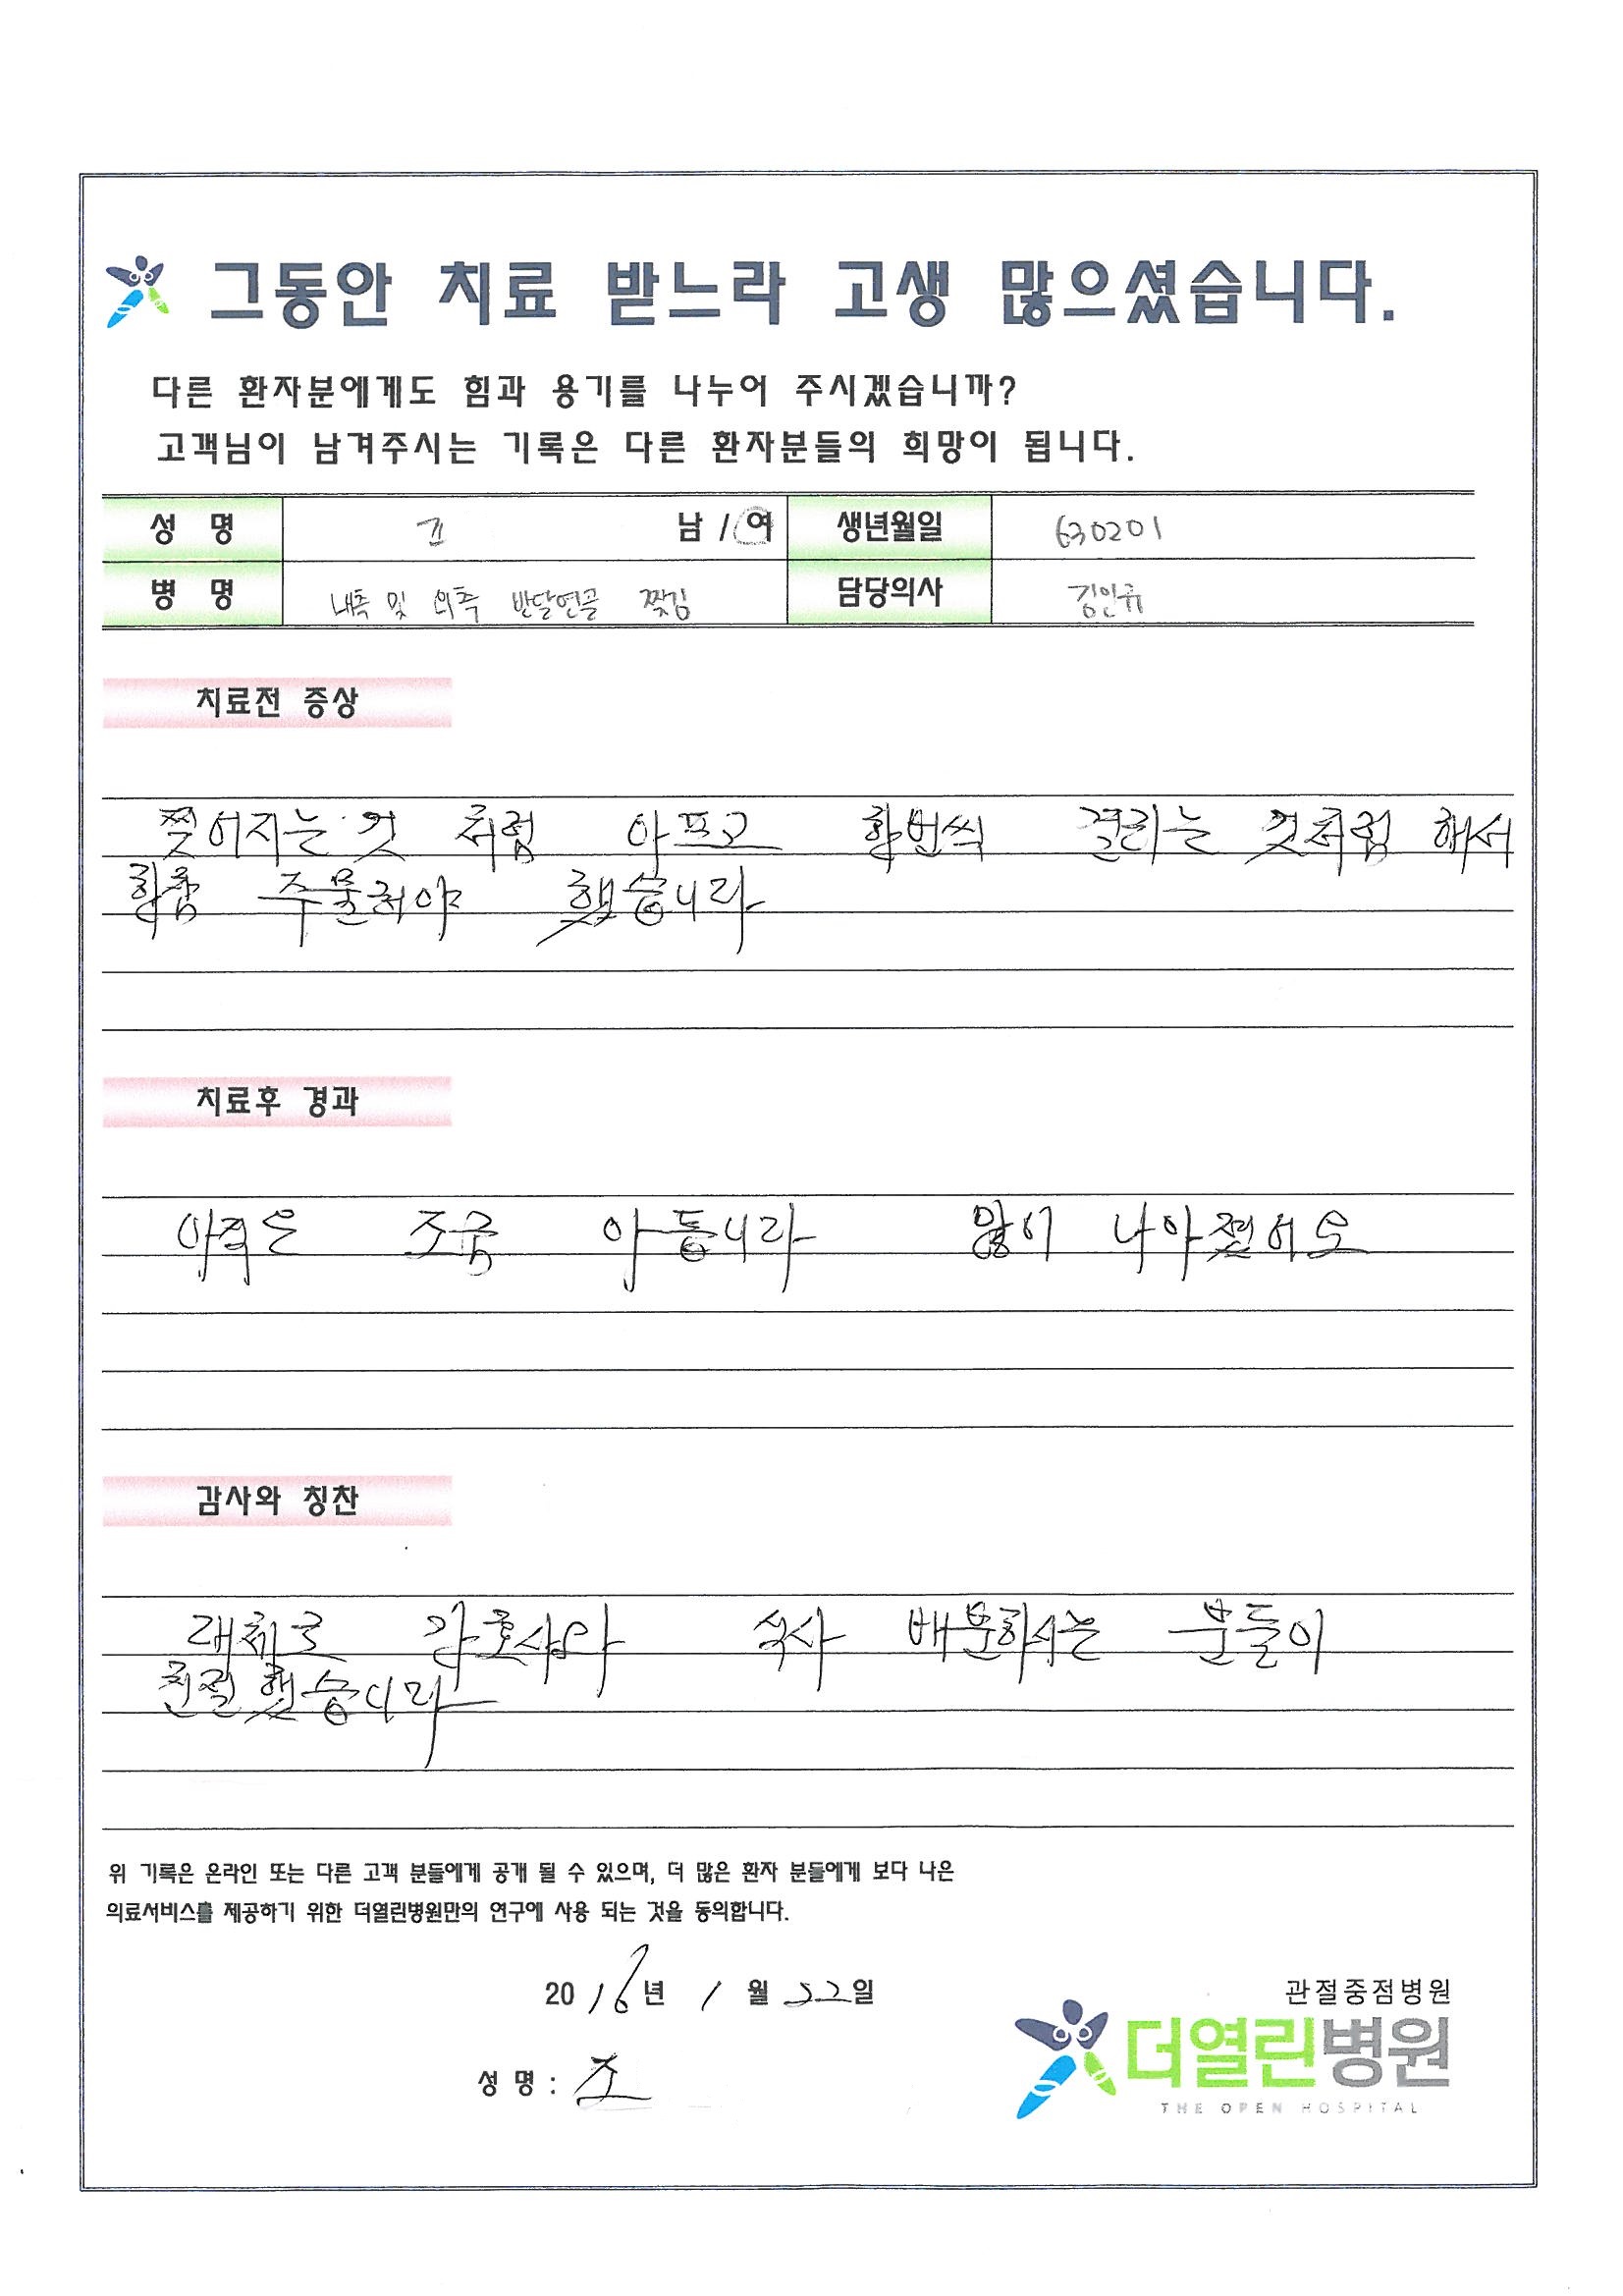 그동안 치료 받느라 고생 많으셨습니다.
다른 환자분에게도 힘과 용기를 나누어 주시겠습니까?
고객님이 남겨주시는 기록은 다른 환자분들의 희망이 됩니다.
성 명 남 / 여 생년월일 630201
병 명 내측 및 외측 반달연골 찢김 담당의사 김인규
치료전 증상
찢어지는 것 처럼 아프고 한번씩 걸리는 것처럼 해서
한참 주물러야 했습니다
치료후 경과
아직은 조금 아픕니다 많이 나아졌어요
감사와 칭찬
대체로 간호사와 식사 배분하시는 분들이
친절했습니다
위 기록은 온라인 또는 다른 고객 분들에게 공개 될 수 있으며, 더 많은 환자 분들에게 보다 나은
의료서비스를 제공하기 위한 더열린병원만의 연구에 사용 되는 것을 동의합니다.
2016년 1월 22일
관절중점병원
더열린병원
THE OPEN HOSPITAL
성 명 : 조